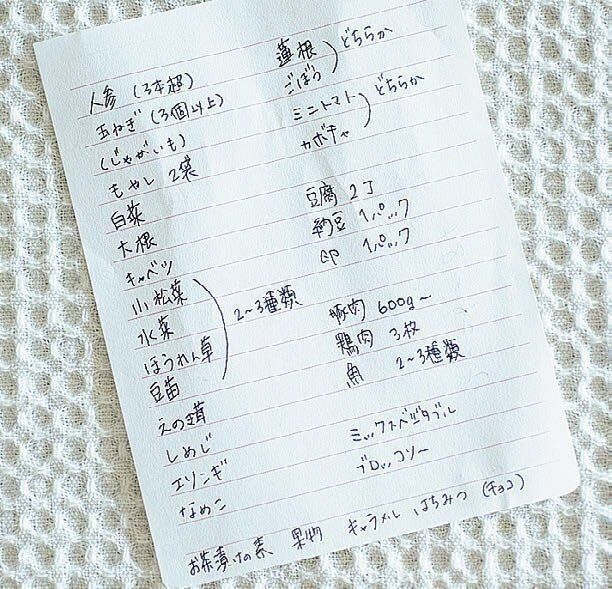 人参 (3本超)
玉ねぎ (3個以上)
(じゃがいも)
もやし 2袋
白菜
大根
キャベツ
小松菜
水菜
ほうれん草
豆苗
2〜3種類
えのき茸
しめじ
エリンギ
なめこ
蓮根
ごぼう
どちらか
ミニトマト
カボチャ
どちらか
豆腐 2丁
納豆 1パック
卵 1パック
豚肉 600g〜
鶏肉 3枚
魚 2〜3種類
ミックスベジタブル
ブロッコリー
お茶漬けの素 果物 キャラメル はちみつ (チョコ)